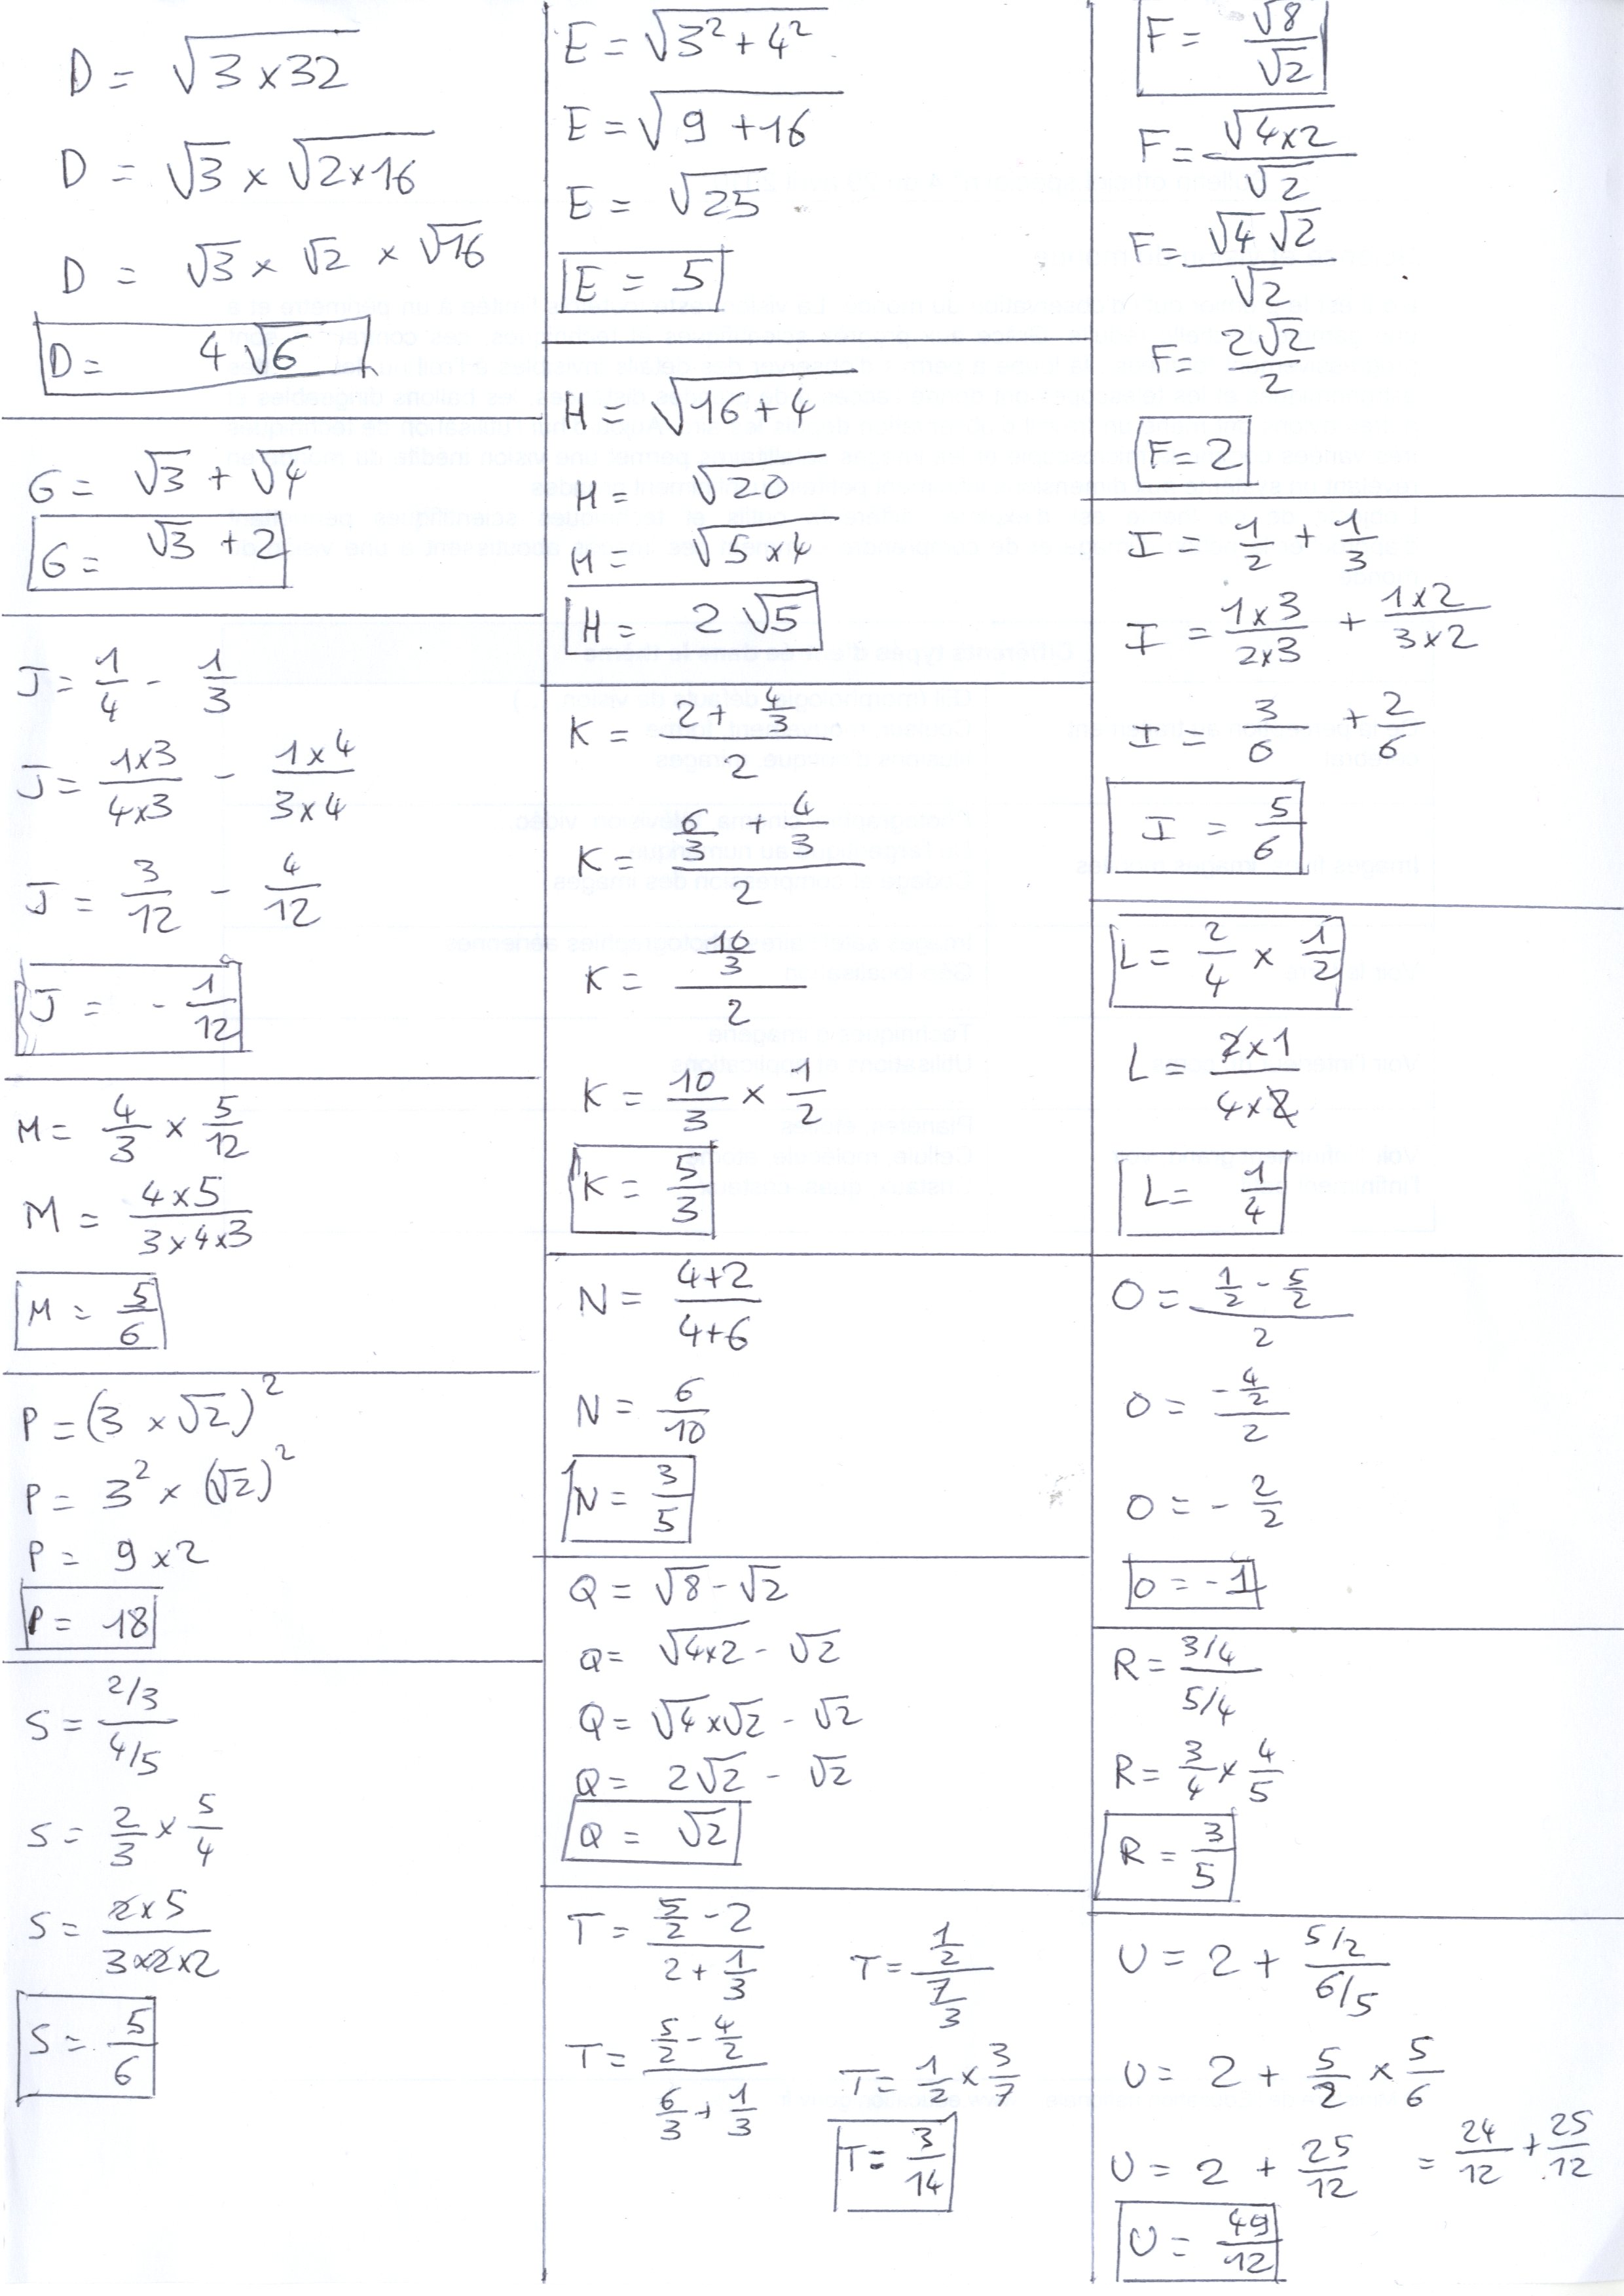 D = √(3 × 32)
D = √3 × √(2 × 16)
D = √3 × √2 × √16
D = 4√6
E = √(3² + 4²)
E = √(9 + 16)
E = √25
E = 5
F = √8/√2
F = √(4×2)/√2
F = √4 √2/√2
F = 2√2/2
F = 2
G = √3 + √4
G = √3 + 2
H = √(16 + 4)
H = √20
H = √(5 × 4)
H = 2√5
I = 1/2 + 1/3
I = (1×3)/(2×3) + (1×2)/(3×2)
I = 3/6 + 2/6
I = 5/6
J = 1/4 - 1/3
J = (1×3)/(4×3) - (1×4)/(3×4)
J = 3/12 - 4/12
J = - 1/12
K = (2 + 4/3)/2
K = (6/3 + 4/3)/2
K = (10/3)/2
K = 10/3 × 1/2
K = 5/3
L = 2/4 × 1/2
L = (2×1)/(4×2)
L = 1/4
M = 4/3 × 5/12
M = (4×5)/(3×4×3)
M = 5/6
N = (4+2)/(4+6)
N = 6/10
N = 3/5
O = (1/2 - 5/2)/2
O = (-4/2)/2
O = - 2/2
O = -1
P = (3 × √2)²
P = 3² × (√2)²
P = 9 × 2
P = 18
Q = √8 - √2
Q = √(4×2) - √2
Q = √4 × √2 - √2
Q = 2√2 - √2
Q = √2
R = (3/4)/(5/4)
R = 3/4 × 4/5
R = 3/5
S = (2/3)/(4/5)
S = 2/3 × 5/4
S = (2×5)/(3×2×2)
S = 5/6
T = (5/2 - 2)/(2 + 1/3)
T = (5/2 - 4/2)/(6/3 + 1/3)
T = (1/2)/(7/3)
T = 1/2 × 3/7
T = 3/14
U = 2 + (5/2)/(6/5)
U = 2 + 5/2 × 5/6
U = 2 + 25/12 = 24/12 + 25/12
U = 49/12